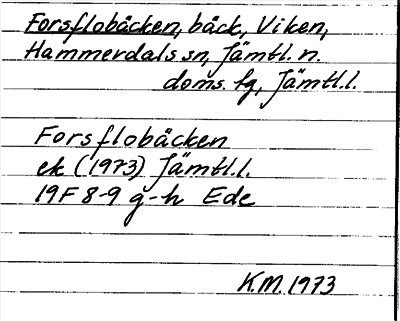 Forsflobäcken, bäck, Viken,
Hammerdals sn, Jämtl. n.
doms. tg, Jämtl.l.
Forsflobäcken
ek (1973) Jämtl.l.
19F 8-9 g-h Ede
K.M. 1973